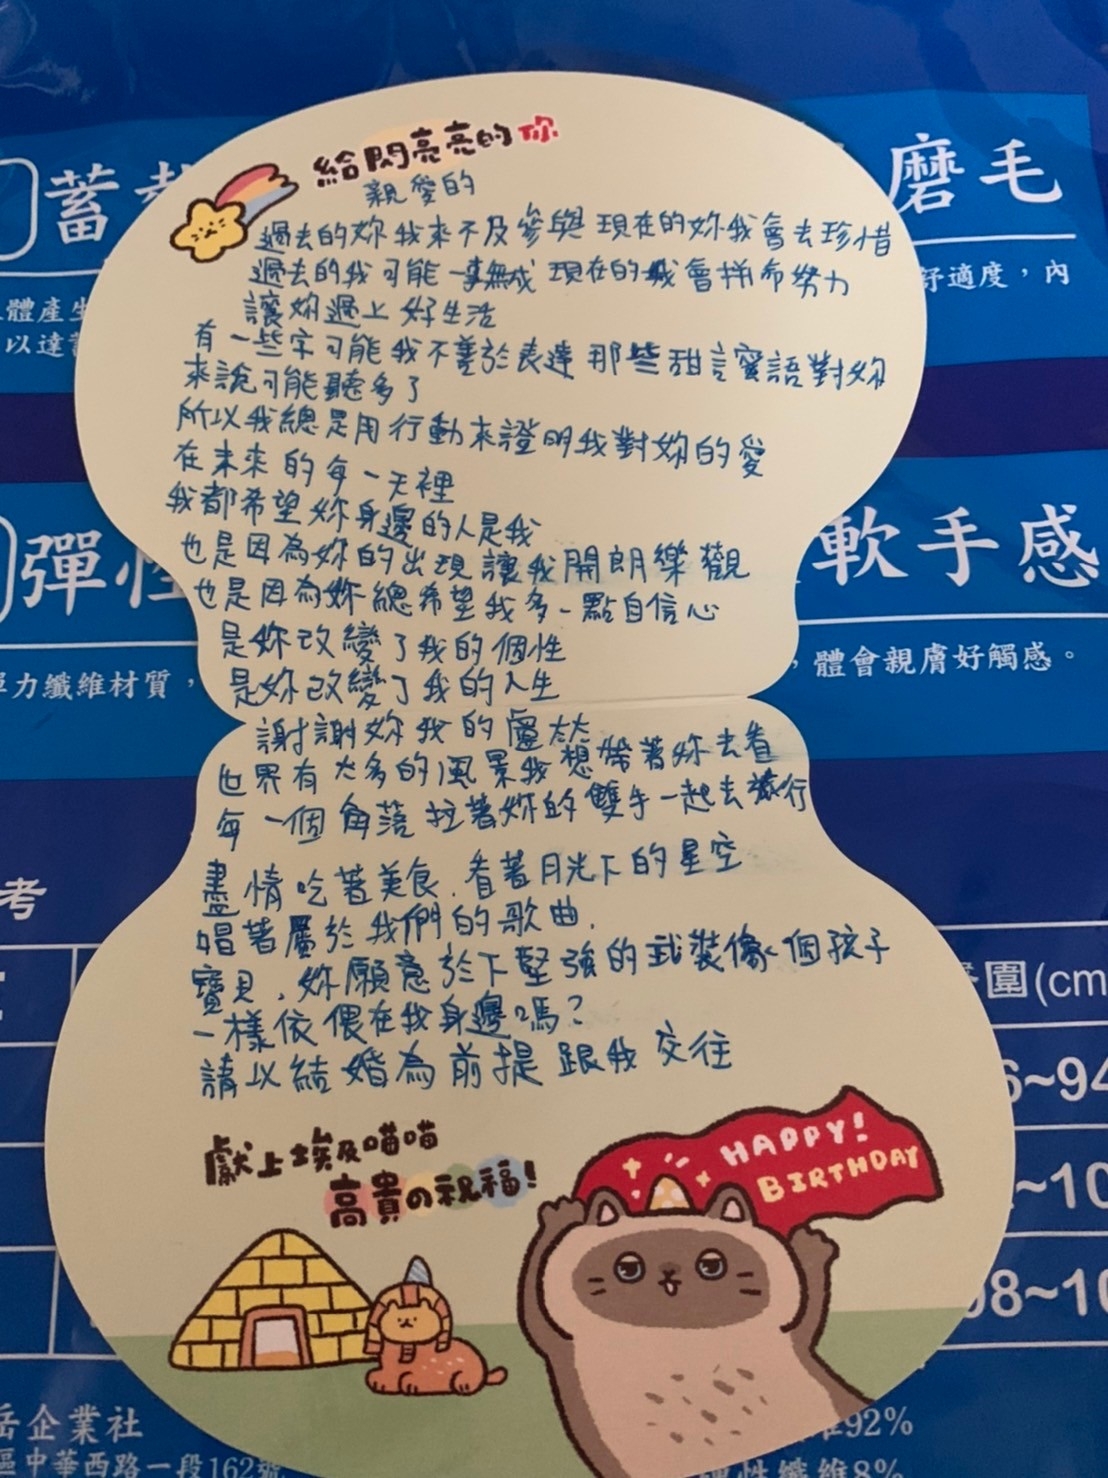 給閃亮亮的你
親愛的
過去的妳我來不及參與 現在的妳我會去珍惜
過去的我可能一事無成 現在的我會拼命努力
讓妳過上好生活
有一些字可能我不善於表達 那些甜言蜜語對妳
來說可能聽多了
所以我總是用行動來證明我對妳的愛
在未來的每一天裡
我都希望妳身邊的人是我
也是因為妳的出現讓我開朗樂觀
也是因為妳總希望我多一點自信心
是妳改變了我的個性
是妳改變了我的人生
謝謝妳我的盧
世界有太多的風景我想帶著妳去看
每一個角落 拉著妳的雙手一起去旅行
盡情吃著美食.看著月光下的星空
唱著屬於我們的歌曲.
寶貝.妳願意放下堅強的武裝像個孩子
一樣依偎在我身邊嗎?
請以結婚為前提 跟我交往
獻上埃及喵喵
高貴の祝福!
HAPPY!
BIRTHDAY
蓄
磨毛
體產生
以達
舒適度，內
彈性
軟手感
彈力纖維材質，
，體會親膚好觸感。
考
圍(cm
6~94
~10
98~10
岳企業社
區中華西路一段162號
維92%
彈性纖維8%